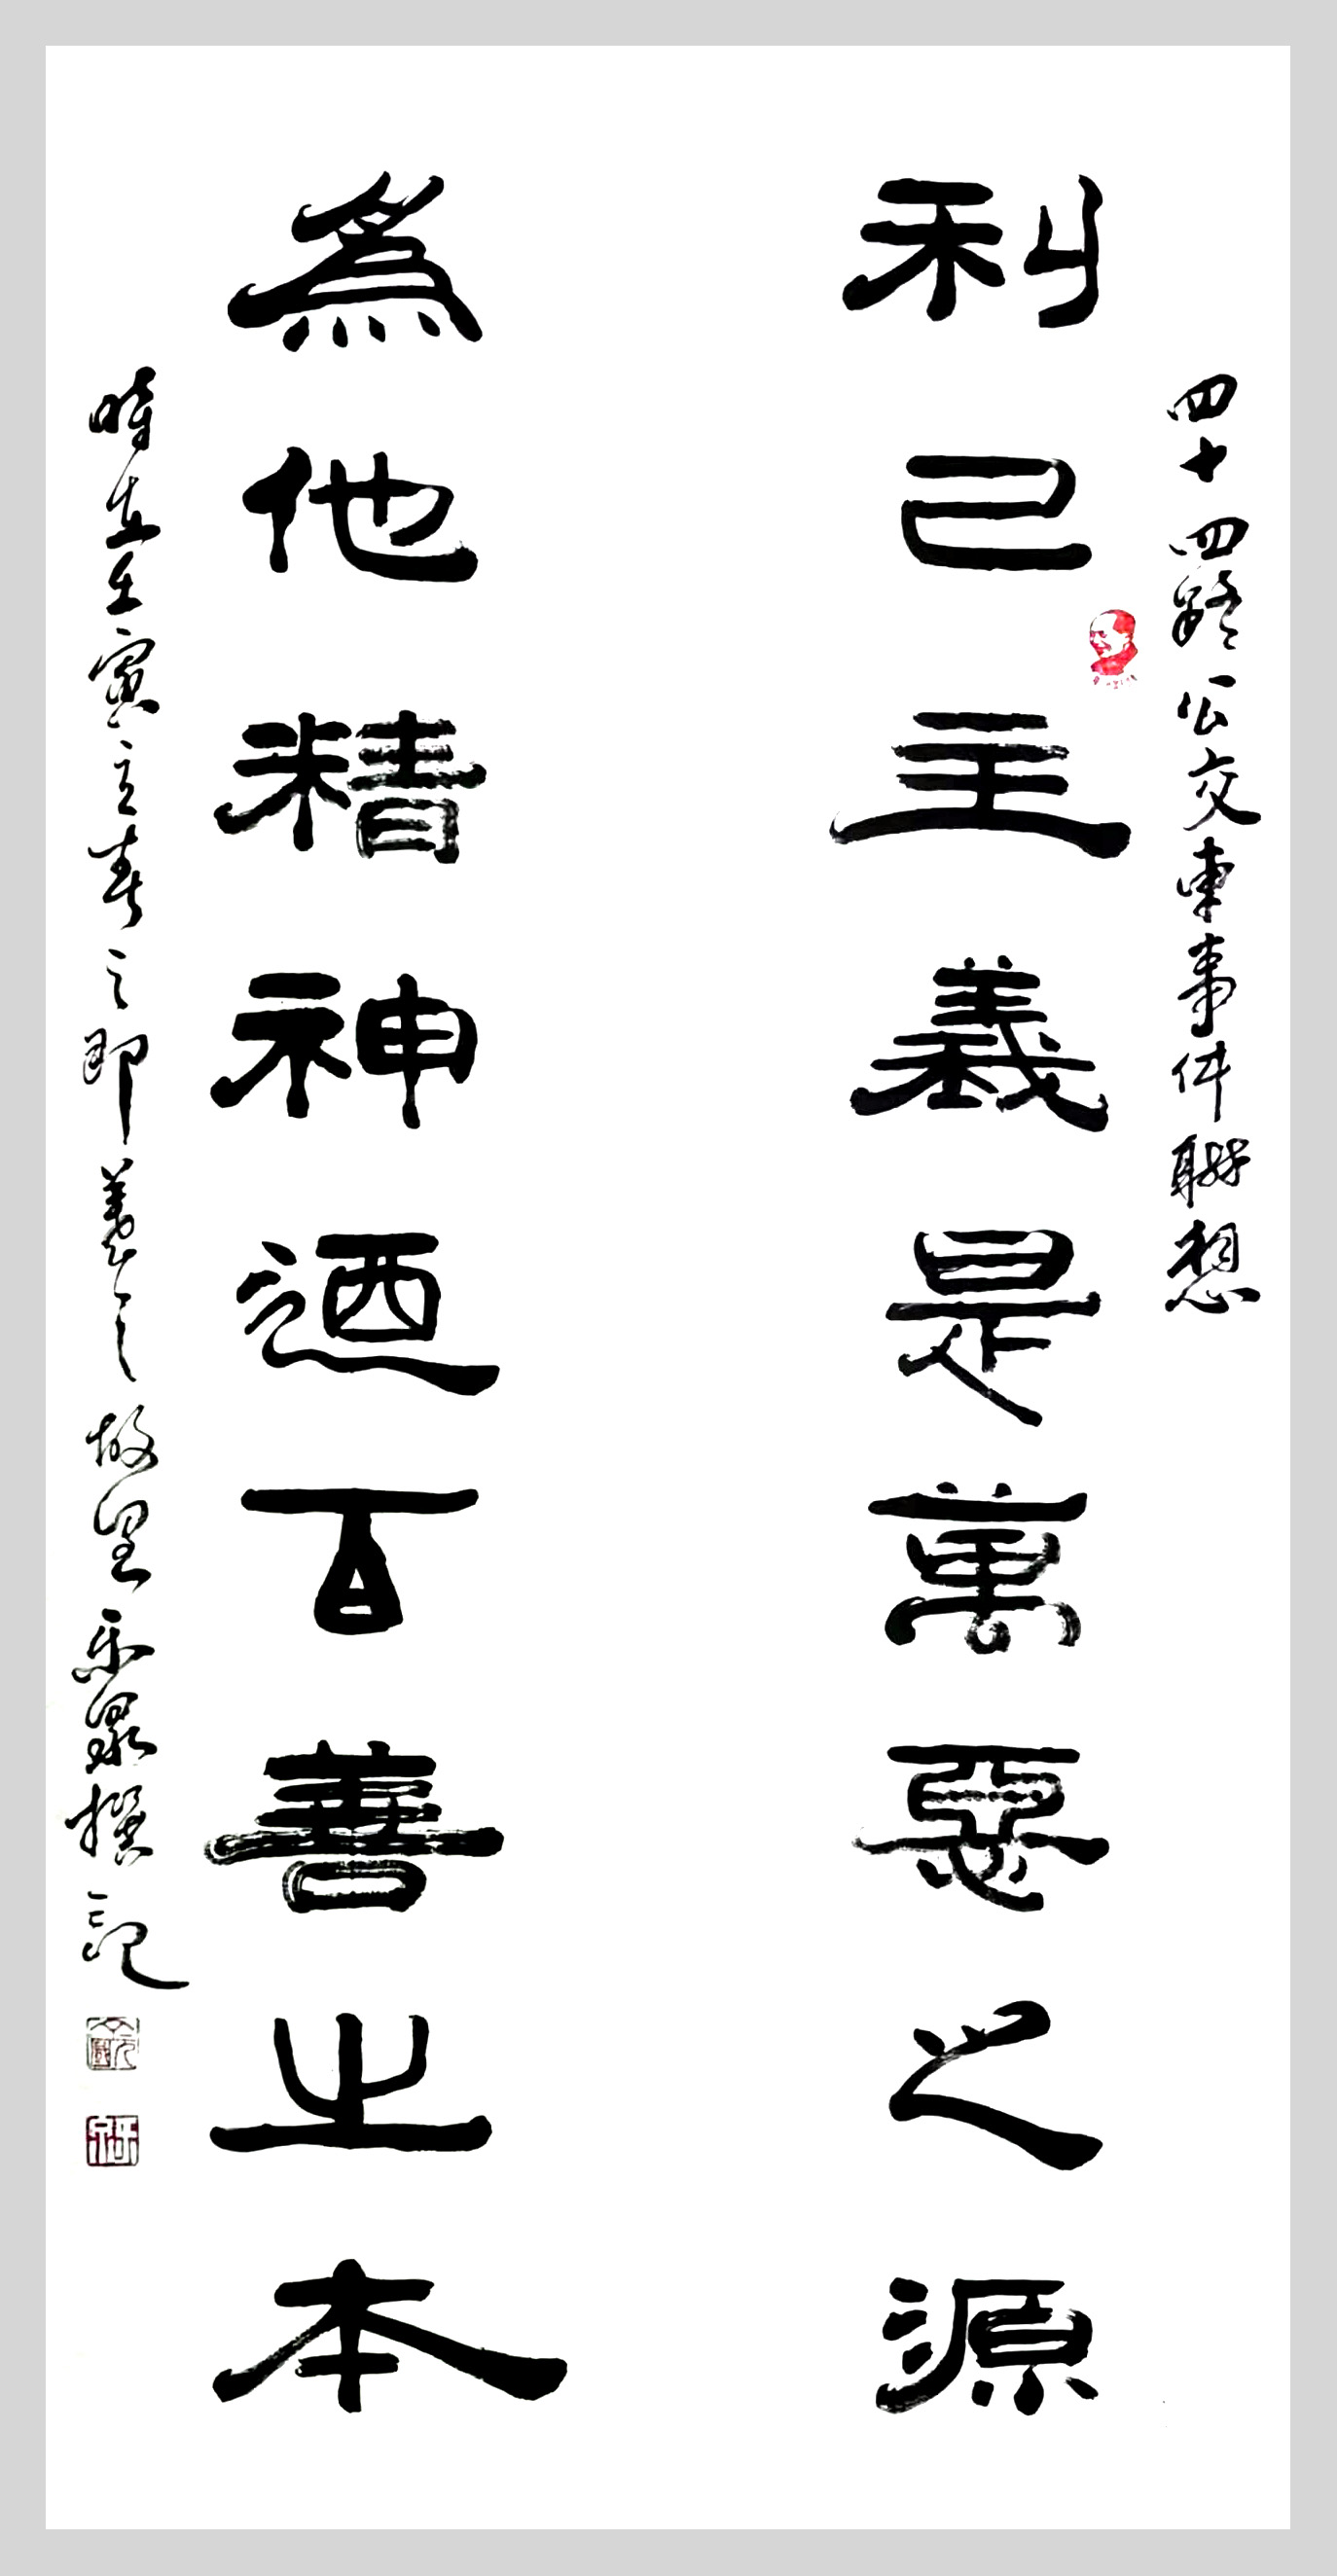 四十四路公交車事件聯想
利己主義是萬惡之源
為他精神迺百善之本
時在壬寅立春之即羲之故里乐泉撰記